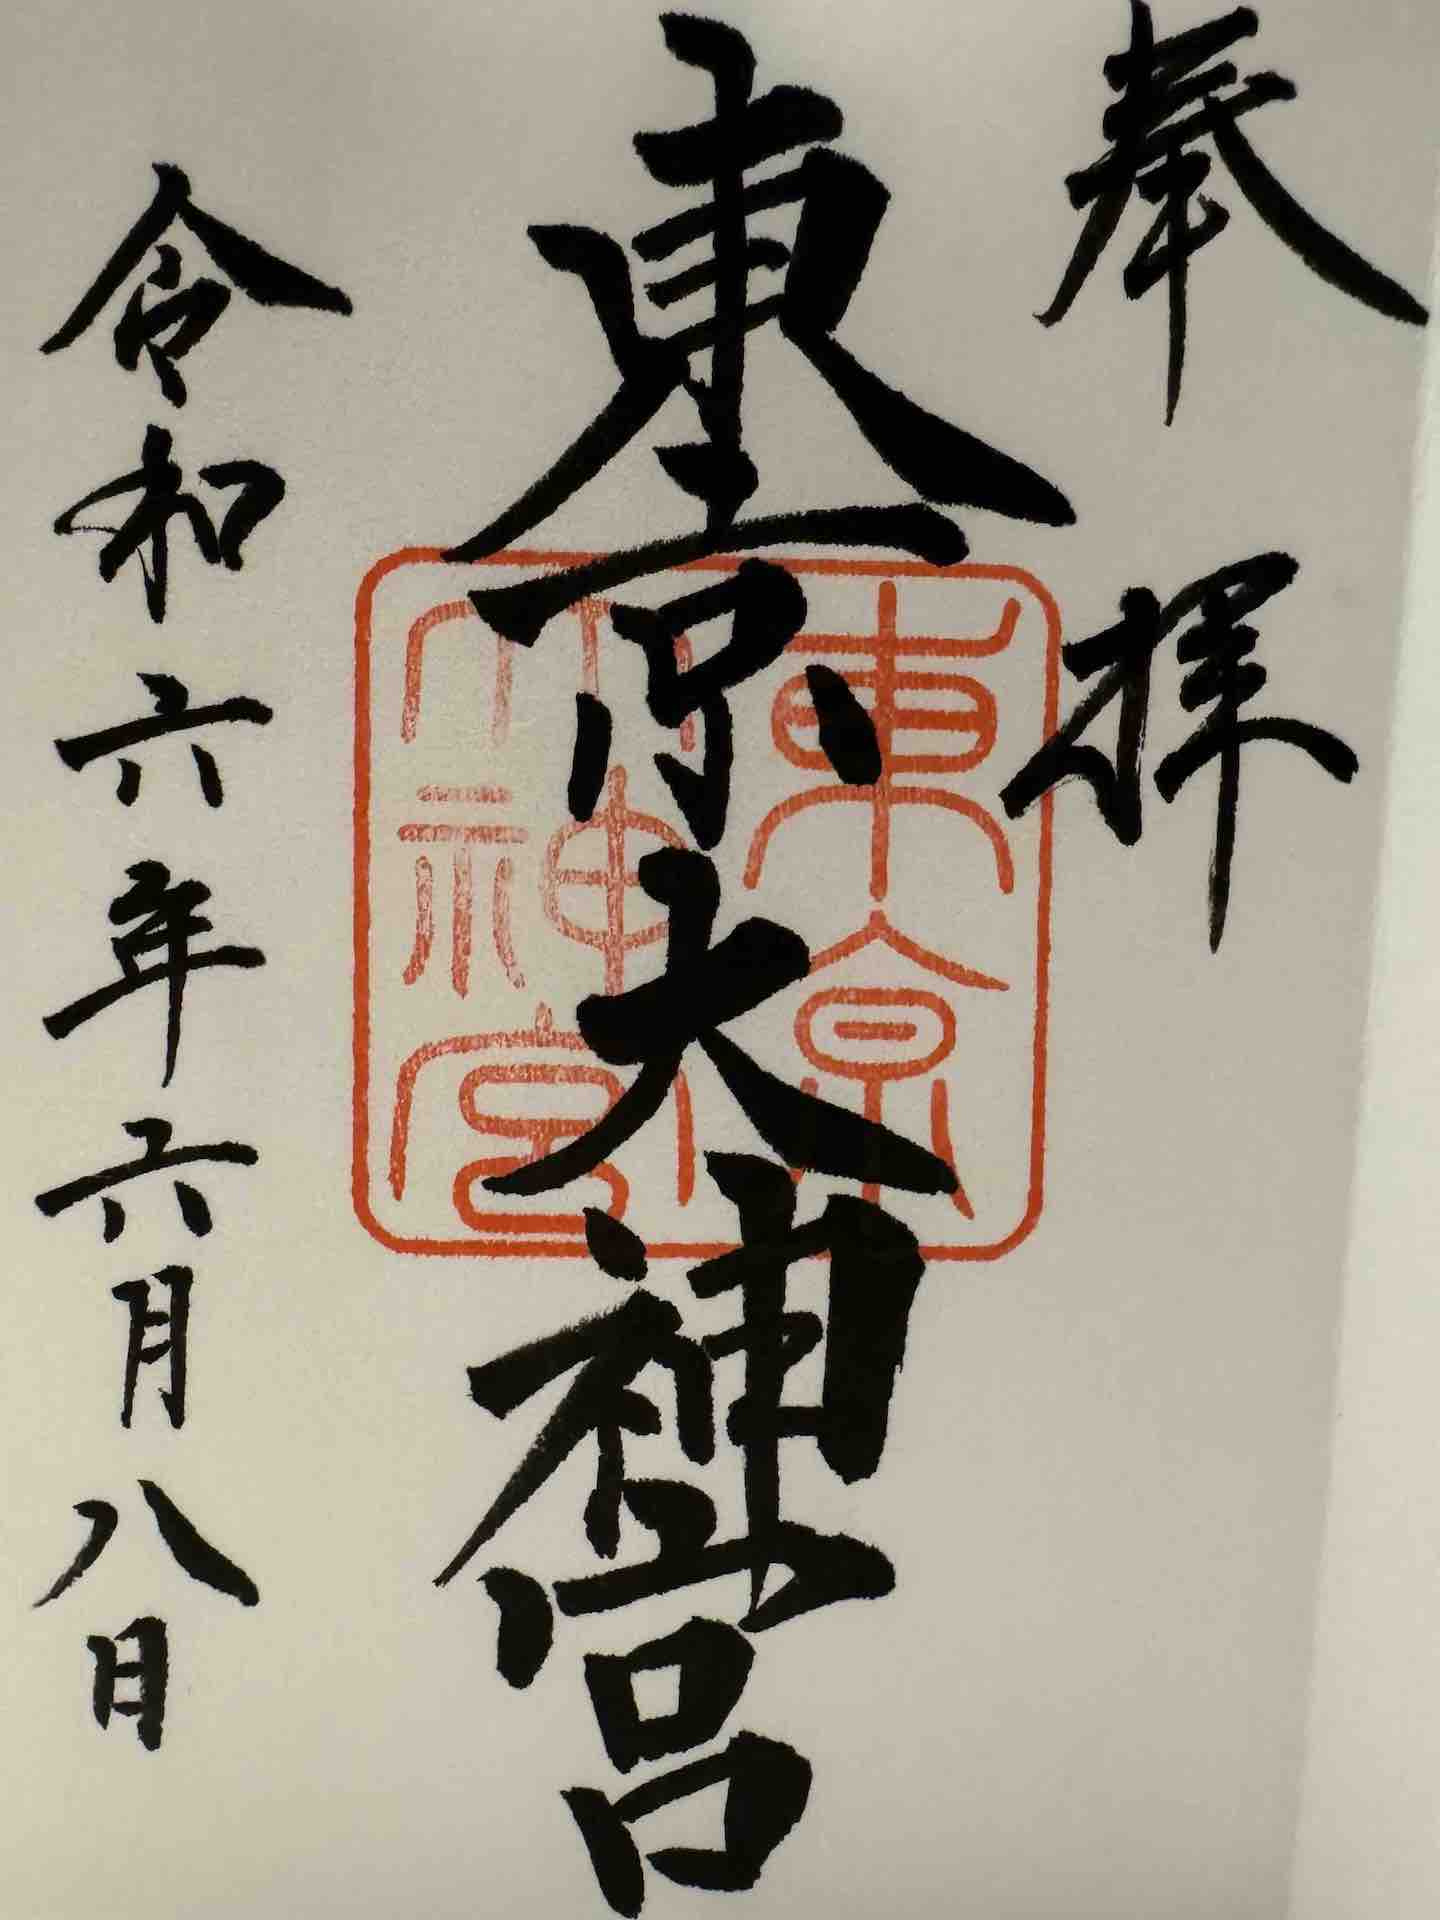 奉拝
東京大神宮
東京
大神宮
令和六年六月八日